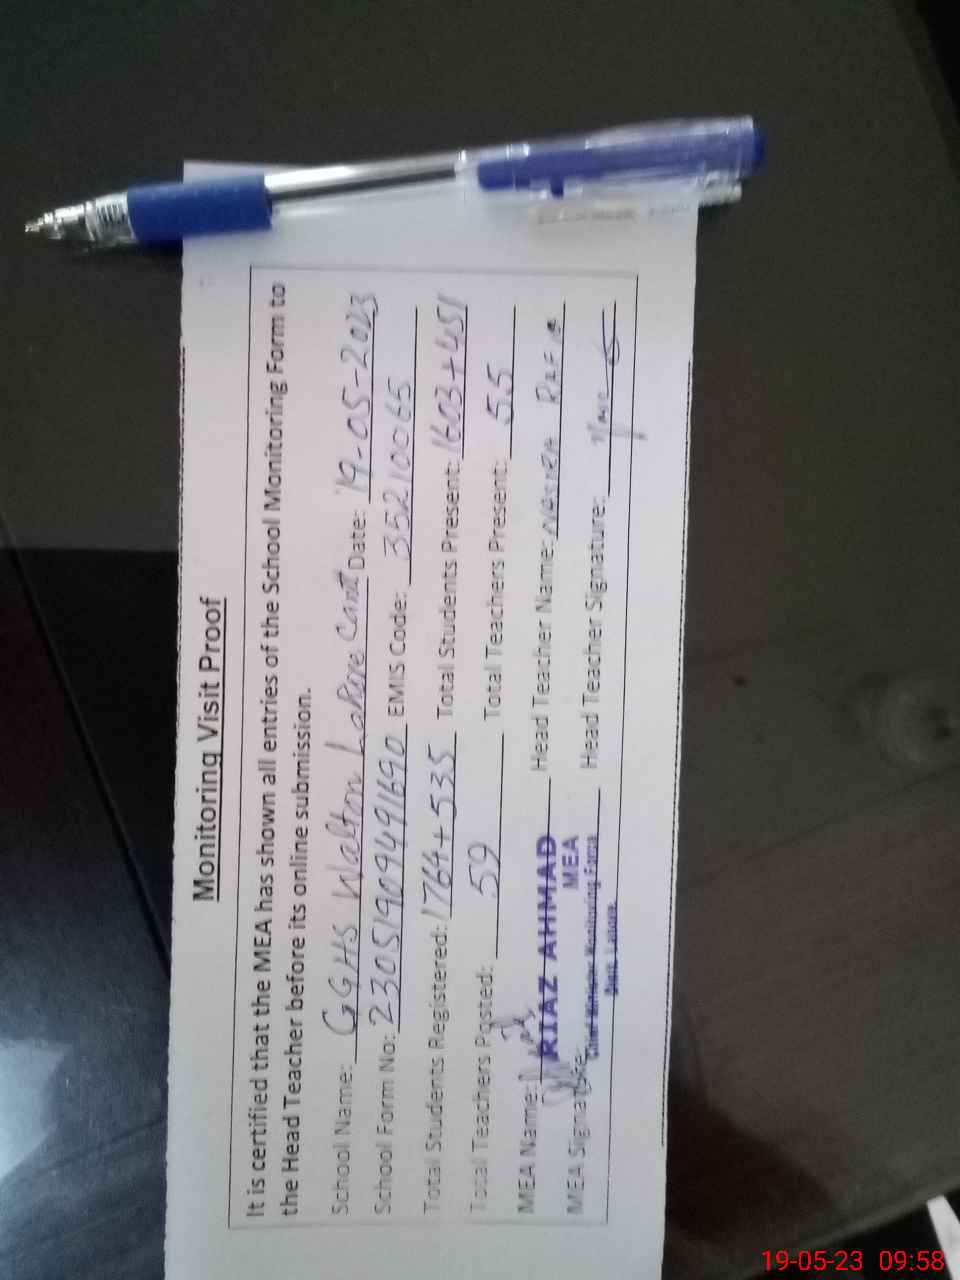 Monitoring Visit Proof
It is certified that the MEA has shown all entries of the School Monitoring Form to
the Head Teacher before its online submission.
School Name: GGHS Walton Lahore Cantt Date: 19-05-2023
School Form No: 23051909491690 EMIS Code: 35210065
Total Students Registered: 1764+535 Total Students Present: 1603+451
Total Teachers Posted: 59 Total Teachers Present: 55
MEA Name: RIAZ AHMAD Head Teacher Name:
MEA
MEA Signature: Head Teacher Signature:
Chief Minister Monitoring Force
Distt. Lahore
19-05-23 09:58